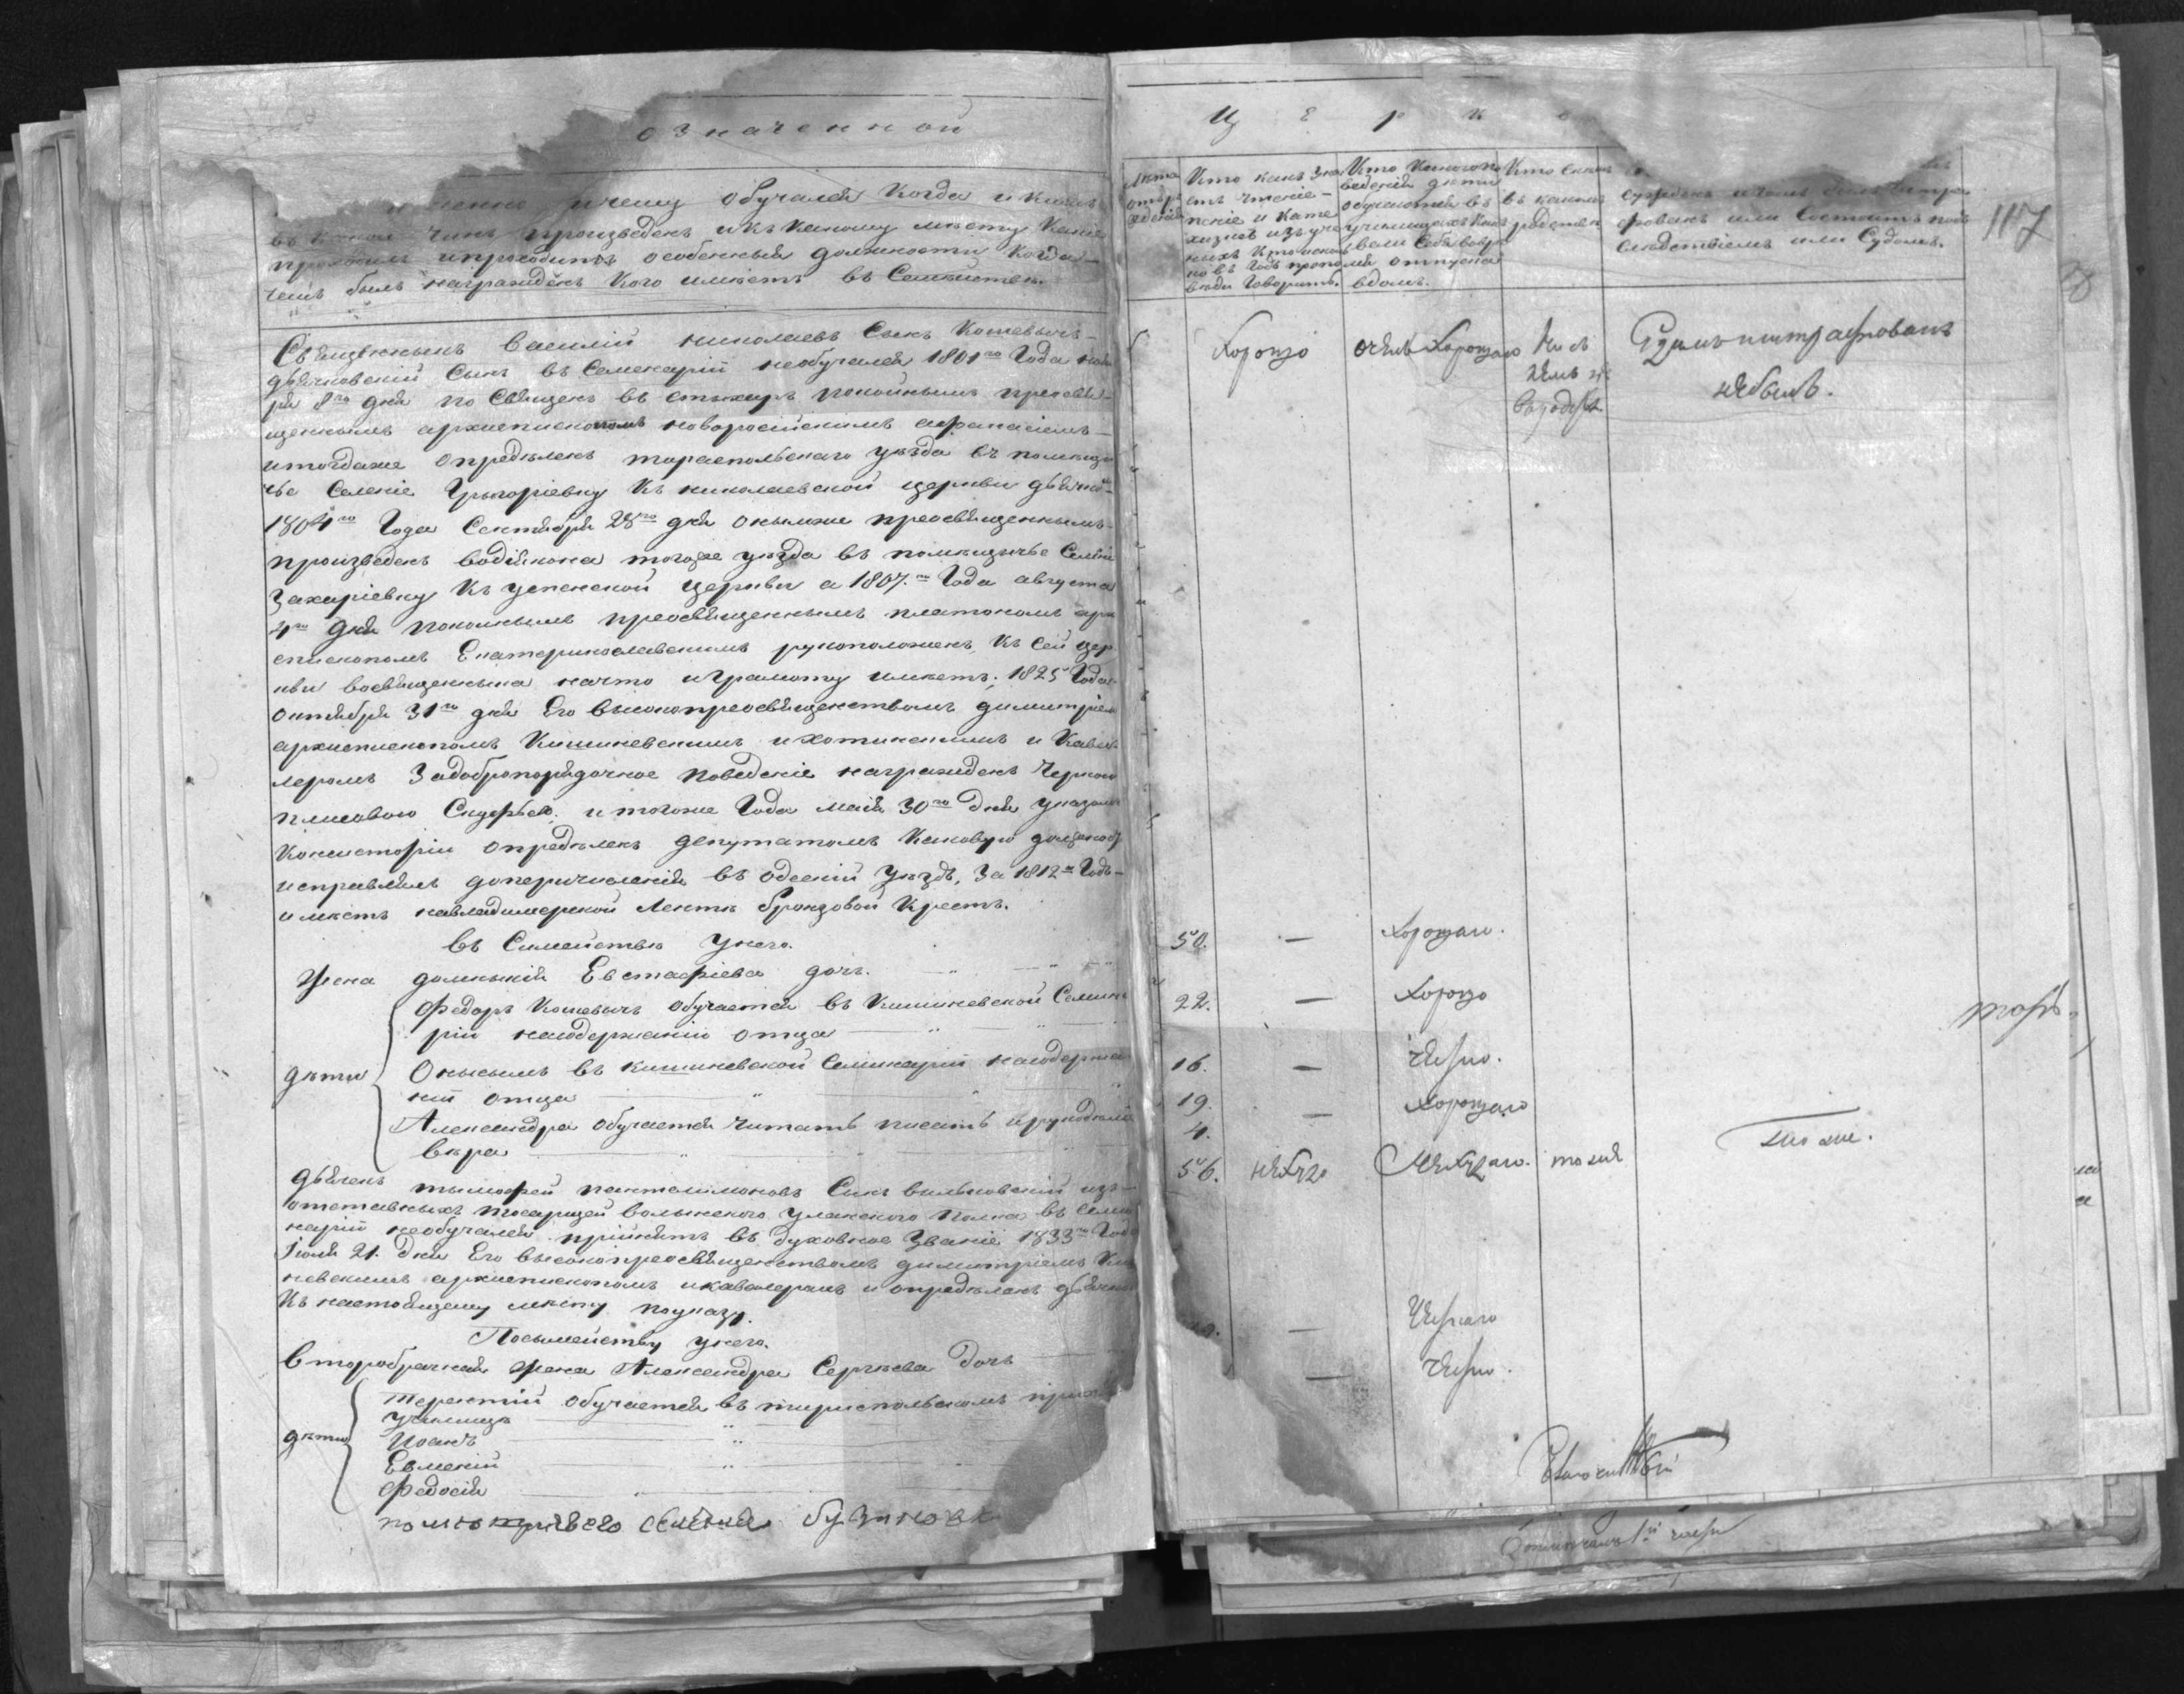 означенной
чему обучался когда и кѣмъ
въ какой чинъ произведенъ и къ какому мѣсту какія
проходилъ и проходитъ особенныя должности когда
чемъ былъ награждёнъ кого имѣетъ въ Семействѣ
Священникъ василій николаевъ Сынъ Кошевичъ
дьячковскій Сынъ въ Семенаріи необучался 1801го Года
ря 8го дня по Священъ въ стыхаръ покойнымъ преосвя
щеннымъ архиепископомъ новоросійскимъ афанасіемъ
итогдаже опредѣленъ тираспольскаго уѣзда въ помѣщи
чье Селеніе Григоріевку Къ николаевской церкви дьячко
1804го Года Сентября 28го дня онымже преосвященнымъ
произведенъ водіякона тогоже уѣзда въ помѣщичье Селеніе
Захаріевку Къ успенской церкви а 1807го Года августа
4го дня покоинымъ преосвященнымъ платономъ арх
епископомъ Екатеринославскимъ рукоположенъ Къ Сей цер
кви восвященника начто играмоту имѣетъ; 1825 Года
октября 31го дня Его высокопреосвященствомъ димитріем
архиепископомъ Кишиневскимъ ихотинскимъ и Кава
леромъ Задобропорядочное поведеніе награжденъ черною
плисовою Скуфьею, итогоже Года маія 30го дня указомъ
Консисторіи опредѣленъ депутатомъ Каковую должность
исправлялъ доперечисленія въ одескій уѣздъ, За 1812й Годъ
имѣетъ навладимерской Лентѣ бронзовой Крестъ.
въ Симействѣ унего.
Жена домникія Евстафіева дочь.
дѣти
Федоръ Кошевичъ обучается въ Кишиневской Семина
ріи насодержаніи отца
Онысимъ въ кишиневской Семинаріи насодержа
ніи отца
Александра обучается читать писать ирукодѣлію
вѣра
дьячекъ тымофей пантелимоновъ Сынъ вильковскій изъ
отставныхъ товарищей волынского уланского полка въ Семи
наріи необучался. принятъ въ духовное Званіе 1833го Года
Іюля 21. дня Его высокопреосвященствомъ димитріемъ Ки
невскимъ архиепископомъ икавалеромъ и опредѣленъ дьячко
Къ настоящему мѣсту поуказу.
Посымейству унего.
Второбрачная жена Александра Сергѣева дочь
дѣти
терентій обучается въ тираспольскомъ прих
училищѣ
Иоанъ
Евмений
Федосія
помѣщичьего селения бузиновк
Ц е р к
Лѣта
отъ р
жденія
Кто какъ Зна
етъ чтеніе
пѣніе и Кате
хизисъ изъуче
ныхъ Кто сколь
ковъ Годъ пропо
вѣди Говоритъ.
Кто Каковопо
веденія дѣти
обучаются въ
училищахъ Какъ
вели Себя вовре
мя отпуска
вдомъ.
Кто Скѣмъ
въ какомъ
родствѣ
сужденъ изачто былъ штра
фованъ или Состоитъ подъ
слѣдствіемъ или Судомъ.
117
Хорошо
очень Хорошаго
Ни съ
кемъ не
въродствѣ
Судимъ иштрафованъ
небылъ.
50. — Хорошаго.
22. — Хорошо
16. —
19. — Хорошаго
4.
56. нехудо Нехудаго. тоже
тоже.